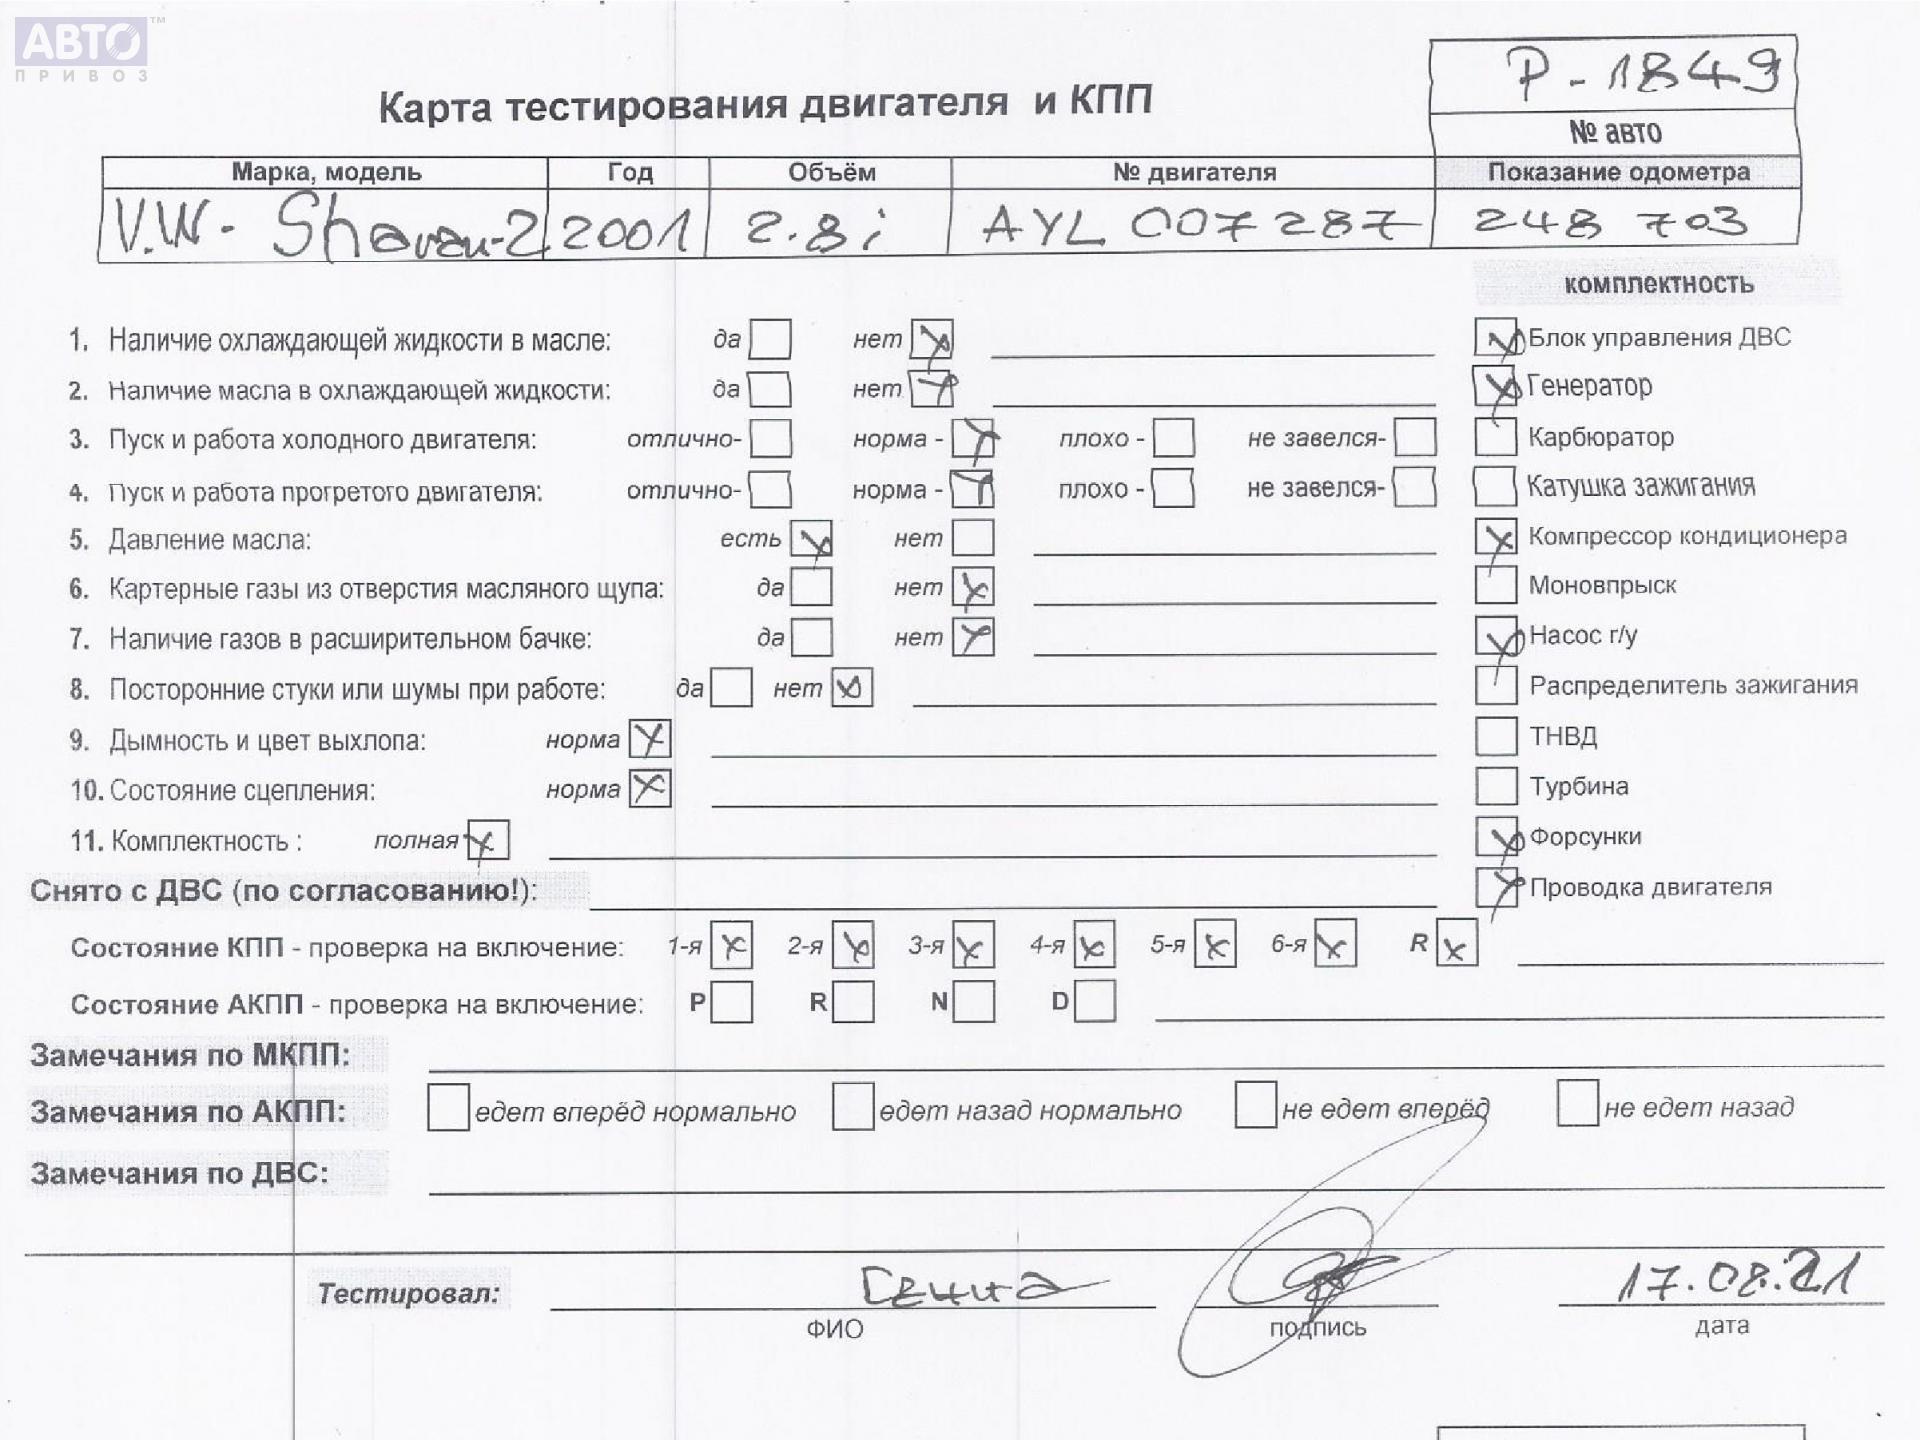 АВТО™
ПРИВОЗ
P-1849
Карта тестирования двигателя и КПП
№ авто
Марка, модель Год Объём № двигателя Показание одометра
V.W- Sharan-2 2001 2.8i AYL 007287 248 703
комплектность
1. Наличие охлаждающей жидкости в масле: да нет Блок управления ДВС
2. Наличие масла в охлаждающей жидкости: да нет Генератор
3. Пуск и работа холодного двигателя: отлично- норма - плохо - не завелся- Карбюратор
4. Пуск и работа прогретого двигателя: отлично- норма - плохо - не завелся- Катушка зажигания
5. Давление масла: есть нет Компрессор кондиционера
6. Картерные газы из отверстия масляного щупа: да нет Моновпрыск
7. Наличие газов в расширительном бачке: да нет Насос г/у
8. Посторонние стуки или шумы при работе: да нет Распределитель зажигания
9. Дымность и цвет выхлопа: норма ТНВД
10. Состояние сцепления: норма Турбина
11. Комплектность : полная Форсунки
Снято с ДВС (по согласованию!): Проводка двигателя
Состояние КПП - проверка на включение: 1-я 2-я 3-я 4-я 5-я 6-я R
Состояние АКПП - проверка на включение: P R N D
Замечания по МКПП:
Замечания по АКПП: едет вперёд нормально едет назад нормально не едет вперёд не едет назад
Замечания по ДВС:
Тестировал: 17.08.21
ФИО подпись дата